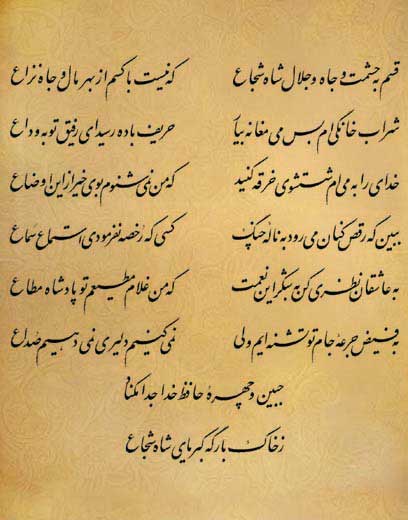 قسم به حشمت و جاه و جلال شاه شجاع که نیست با کسم از بهر مال و جاه نزاع
شراب خانگی ام بس می مغانه بیار حریف باده رسید ای رفیق توبه وداع
خدای را به می ام شستشوی خرقه کنید که من نمی شنوم بوی خیر از این اوضاع
ببین که رقص کنان می رود به ناله چنگ کسی که رخصه نفرمودی استماع سماع
به عاشقان نظری کن به شکر این نعمت که من غلام مطیعم تو پادشاه مطاع
به فیض جرعه جام تو تشنه ایم ولی نمی کنیم دلیری نمی دهیم صداع
جبین و چهرهٔ حافظ خدا جدا مکناد
ز خاک بارگه کبریای شاه شجاع